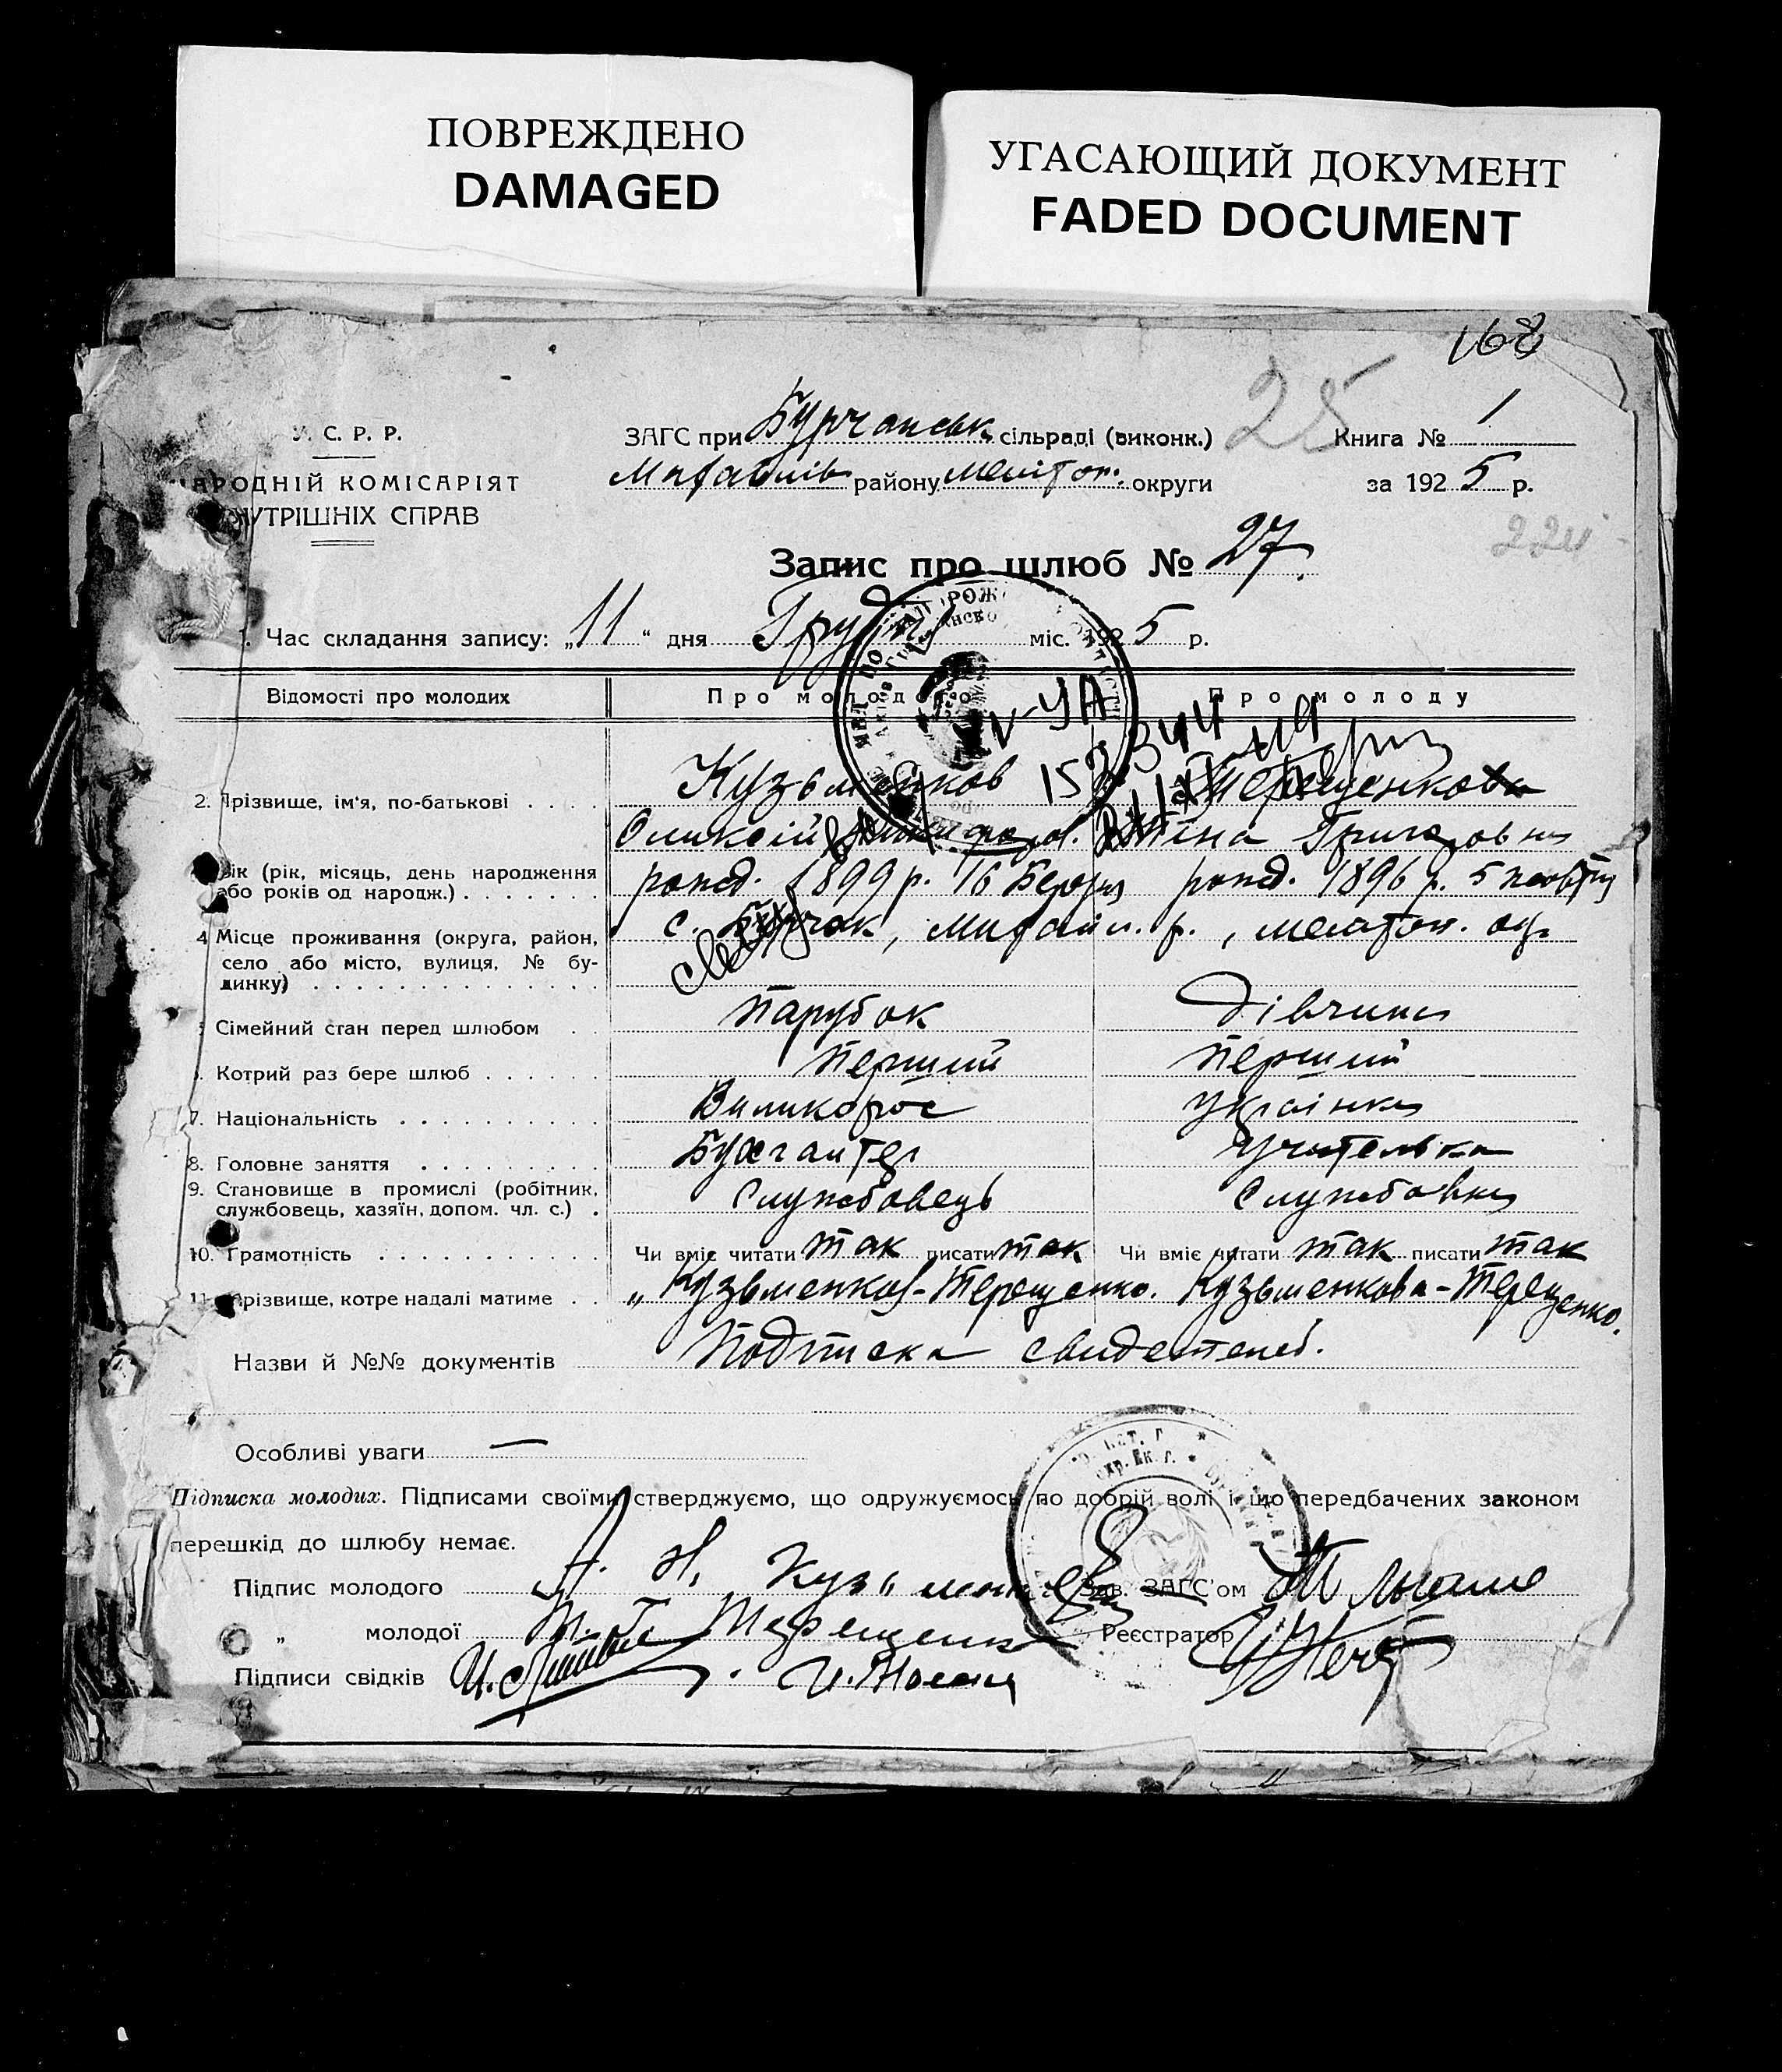 ПОВРЕЖДЕНО
DAMAGED
УГАСАЮЩИЙ ДОКУМЕНТ
FADED DOCUMENT
168
25
У. С. Р. Р.
НАРОДНІЙ КОМІСАРІЯТ
ВНУТРІШНІХ СПРАВ
ЗАГС при Бурчанськ сільраді (виконк.)
Михайлів району Мелітоп. округи
Книга № 1
за 1925 р.
Запис про шлюб № 27.
1. Час складання запису: „11“ дня Грудня міс. 1925 р.
Відомості про молодих Про молодого Про молоду
2. Прізвище, ім'я, по-батькові . . . . Кузьменков Терещенкова
Оликсій Григоровна
Вік (рік, місяць, день народження
або років од народж.) . . . . . . . рожд. 1899 р. 16 Березня рожд. 1896 р. 5
4 Місце проживання (округа, район, с. Бурчак, Михайл. р., Мелітоп. окр.
село або місто, вулиця, № бу-
динку) . . . . . . . . . . . . . .
Сімейний стан перед шлюбом . . Парубок Дівчина
Котрий раз бере шлюб . . . . . . Перший Перший
7. Національність . . . . . . . . . . Виликорос Українка
8. Головне заняття . . . . . . . . . Бухгалтер Учителька
9. Становище в промислі (робітник,
службовець, хазяїн, допом. чл. с.) . Службовець Службовка
10. Грамотність . . . . . . . . . . . Чи вміє читати так писати так Чи вміє читати так писати так
11. Прізвище, котре надалі матиме . . „Кузьменков-Терещенко. Кузьменкова-Терещенко.
Назви й №№ документів Подписка свидетелей.
Особливі уваги —
Підписка молодих. Підписами своїми стверджуємо, що одружуємось по добрій волі і що передбачених законом
перешкід до шлюбу немає.
Підпис молодого А. Н. Зав. ЗАГС'ом
„ молодої Т. Г. Терещенко Реєстратор
Підписи свідків